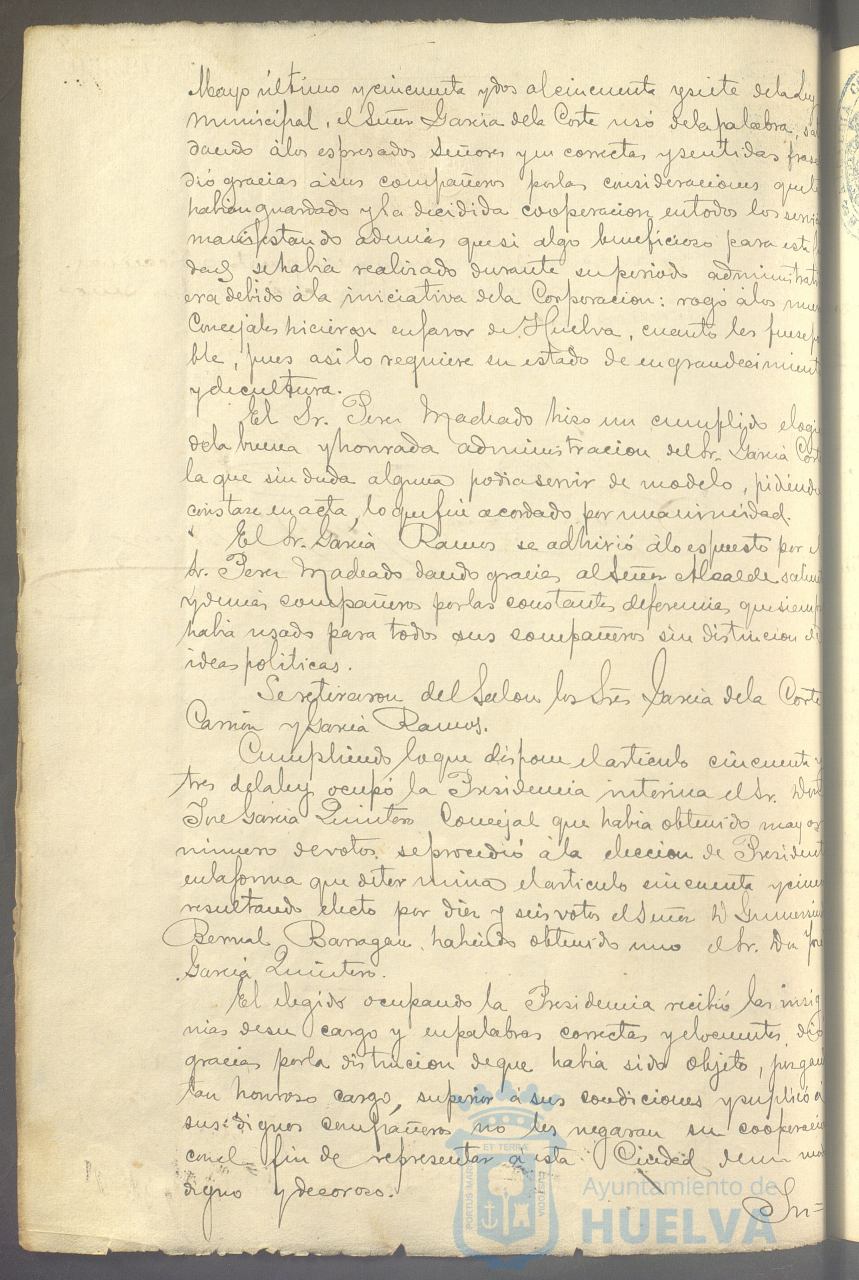 Mayo último y cincuenta y dos al cincuenta y siete de la Ley
municipal, el Señor Garcia de la Corte usó de la palabra, sa
dando á los espresados Señores y en correctas y sentidas frase
dió gracias á sus compañeros por las consideraciones que le
habian guardado y la decidida cooperacion en todos los servi
manifestando además que si algo beneficioso para esta
dad se habia realizado durante su periodo administrati
era debido á la iniciativa de la Corporacion: rogó á los nue
Concejales hicieron en favor de Huelva, cuanto les fuese p
ble, pues asi lo requiere su estado de engrandecimient
y de cultura.
El Sr. Perez Machado hizo un cumplido elogi
de la buena y honrada administracion del Sr. Garcia Cort
la que sin duda alguna podia servir de modelo, pidiendo
constase en acta, lo que fué acordado por unanimidad.
El Sr. Garcia Ramos se adhirió á lo espuesto por el
Sr. Perez Machado dando gracias al Señor Alcalde salient
y demás compañeros por las constantes deferencias que siemp
habia usado para todos sus compañeros sin distincion de
ideas politicas.
Se retiraron del Salon los Sres Garcia de la Corte
Carrion y Garcia Ramos.
Cumpliendo lo que dispone el articulo cincuenta y
tres de la ley ocupó la Presidencia interina el Sr. Don
José Garcia Quintero Concejal que habia obtenido mayor
número de votos. se procedió á la eleccion de President
en la forma que determina el articulo cincuenta y cinco
resultando electo por diez y seis votos el Señor D Gumersin
Bernal Barragan, habiendo obtenido uno el Sr. Don José
Garcia Quintero.
El elegido ocupando la Presidencia recibió las insig
nias de su cargo y en palabras correctas y elocuentes dió
gracias por la distincion de que habia sido objeto,
tan honroso cargo, superior á sus condiciones y suplicó á
sus dignos compañeros no les negaran su cooperacio
con el fin de representar á esta Ciudad de un mod
digno y decoroso.
In=
PORTUS MARIS
ET TERRÆ
CUSTODIA
Ayuntamiento de
HUELVA